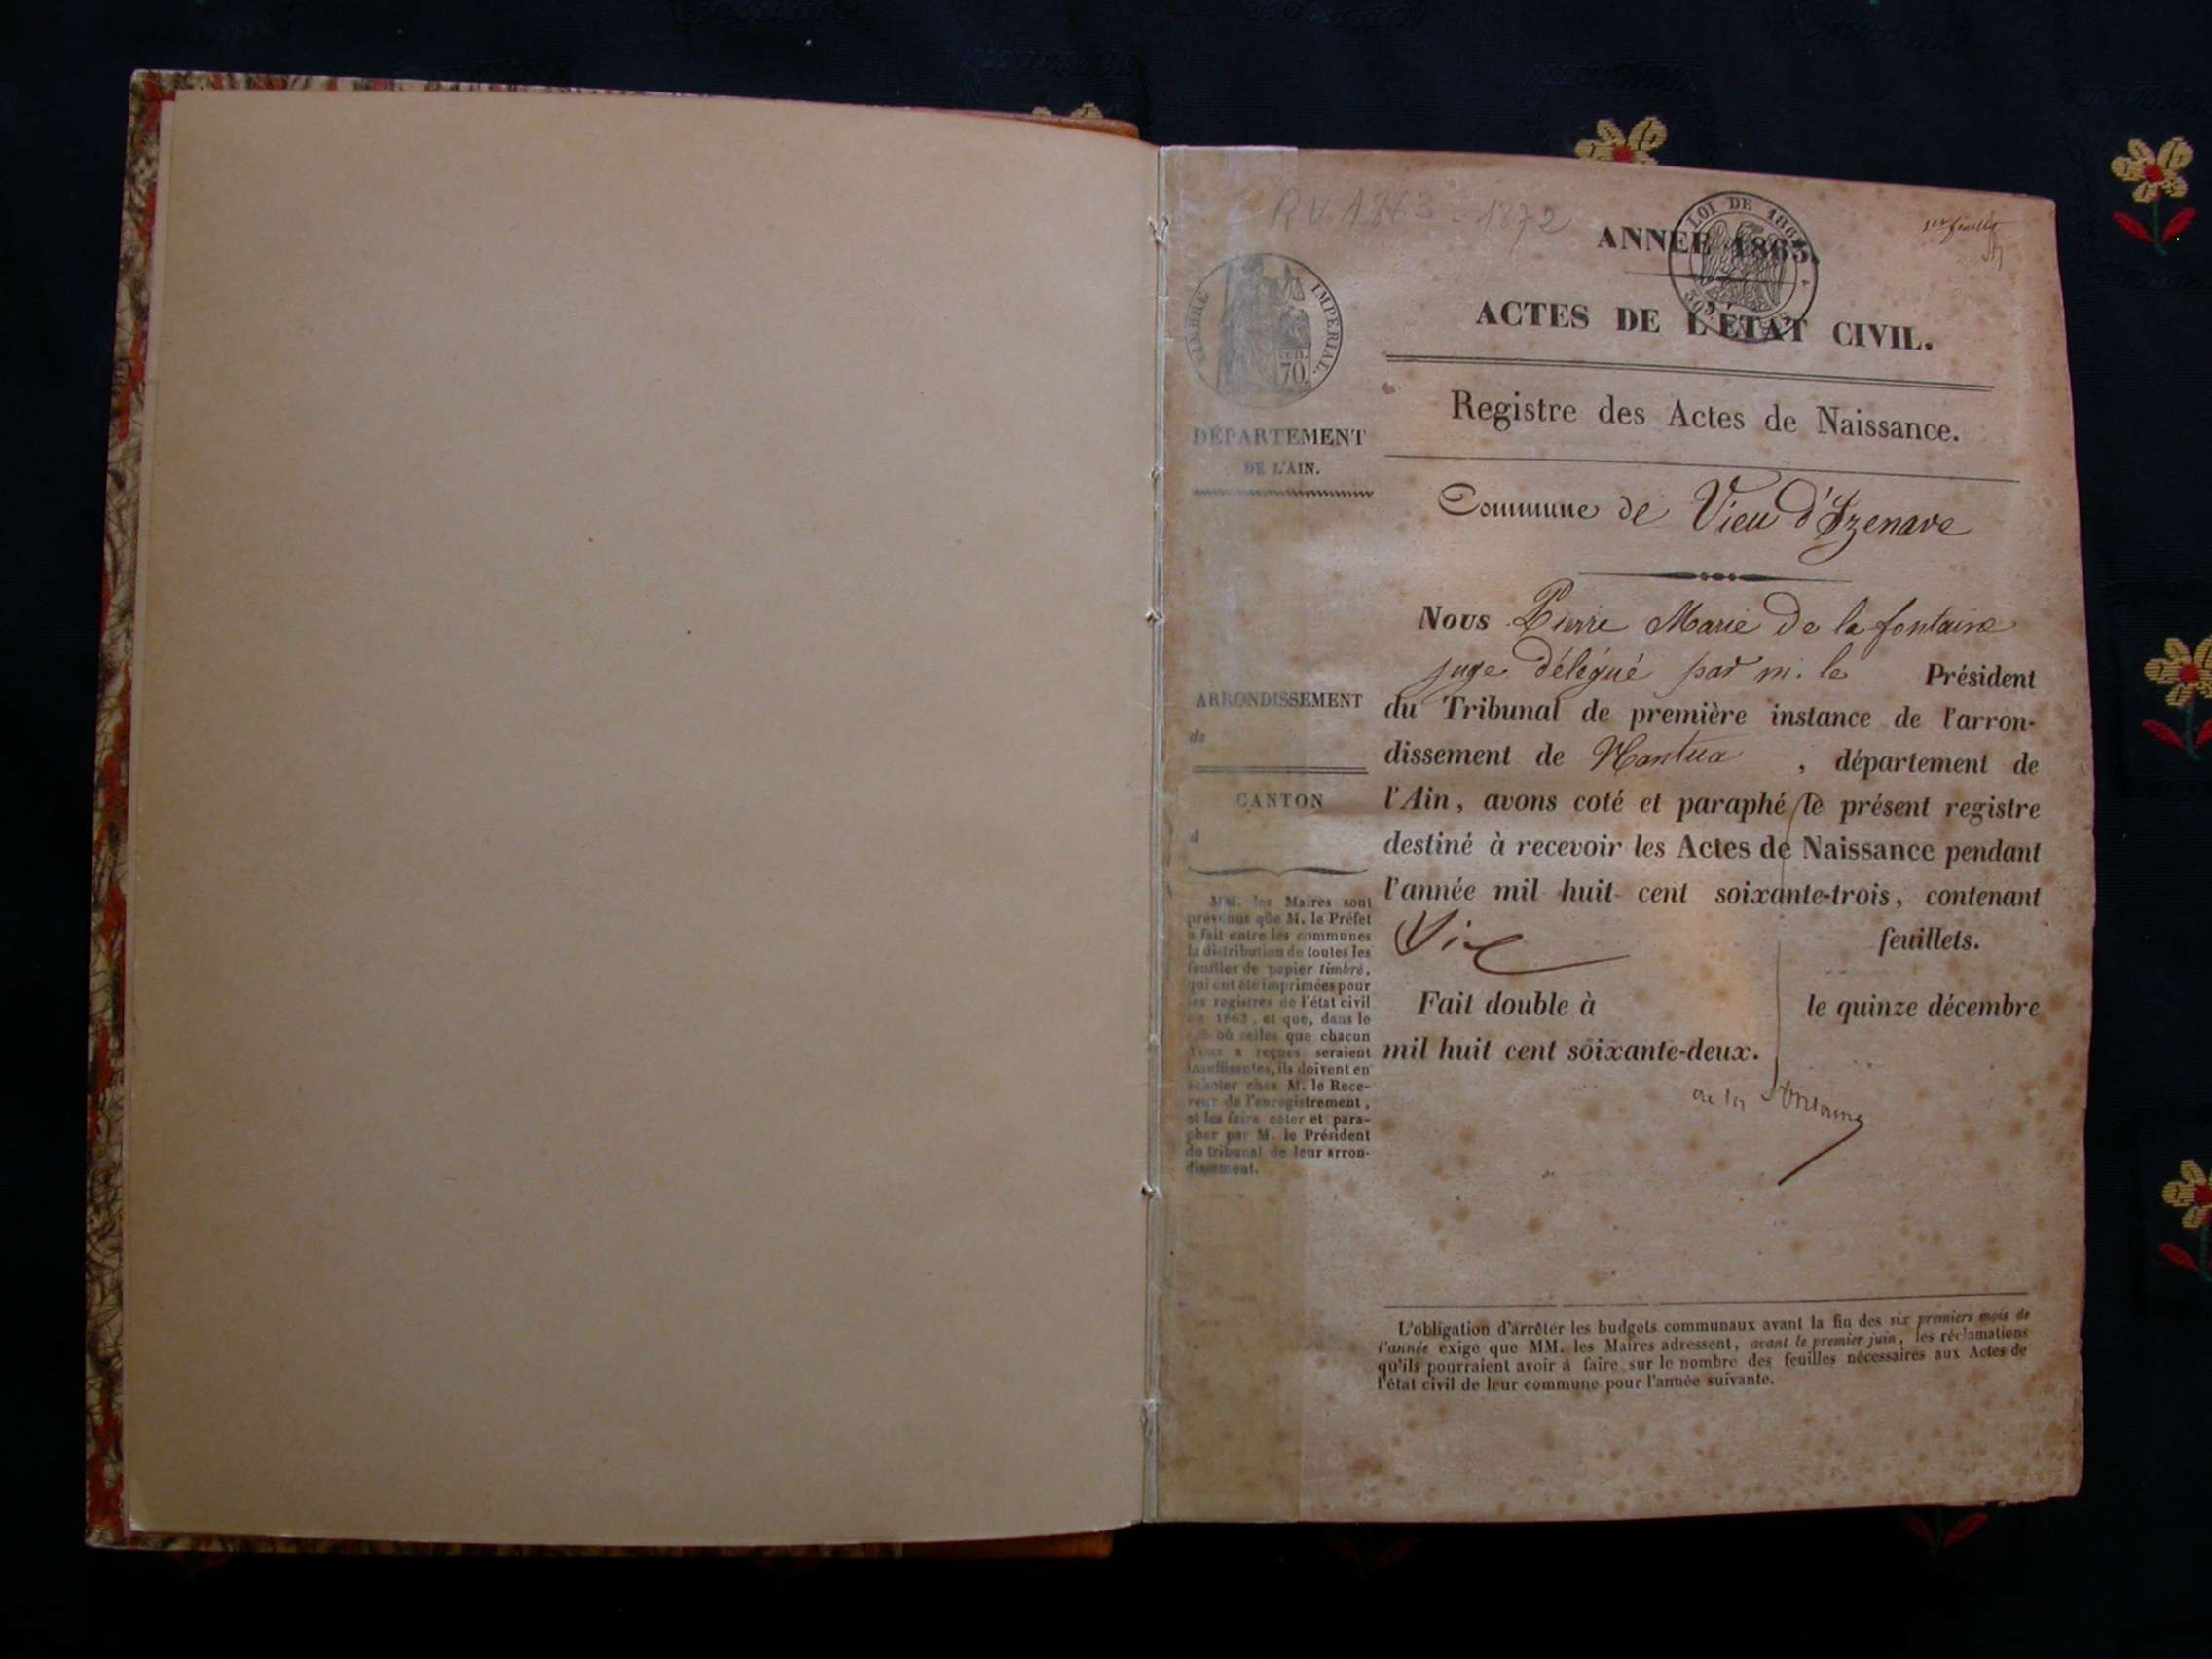 R.V. 1863 - 1872
1er feuillet
LOI DE 1862
ANNÉE 1863.
ACTES DE L'ÉTAT CIVIL.
Registre des Actes de Naissance.
Commune de Vieu d'Izenave
Nous Pierre Marie De la fontaine
juge délégué par m. le Président
du Tribunal de première instance de l'arron-
dissement de Nantua, département de
l'Ain, avons coté et paraphé le présent registre
destiné à recevoir les Actes de Naissance pendant
l'année mil huit cent soixante-trois, contenant
Six feuillets.
Fait double à le quinze décembre
mil huit cent soixante-deux.
de la fontaine
L'obligation d'arrêter les budgets communaux avant la fin des six premiers mois de
l'année exige que MM. les Maires adressent, avant le premier juin, les réclamations
qu'ils pourraient avoir à faire sur le nombre des feuilles nécessaires aux Actes de
l'état civil de leur commune pour l'année suivante.
TIMBRE IMPÉRIAL.
70
DÉPARTEMENT
DE L'AIN.
ARRONDISSEMENT
de
CANTON
d
MM. les Maires sont
prévenus que M. le Préfet
a fait entre les communes
la distribution de toutes les
feuilles de papier timbré,
qui ont été imprimées pour
les registres de l'état civil
en 1863, et que, dans le
cas où celles que chacun
d'eux a reçues seraient
insuffisantes, ils doivent en
acheter chez M. le Rece-
veur de l'enregistrement,
et les faire coter et para-
pher par M. le Président
du tribunal de leur arron-
dissement.